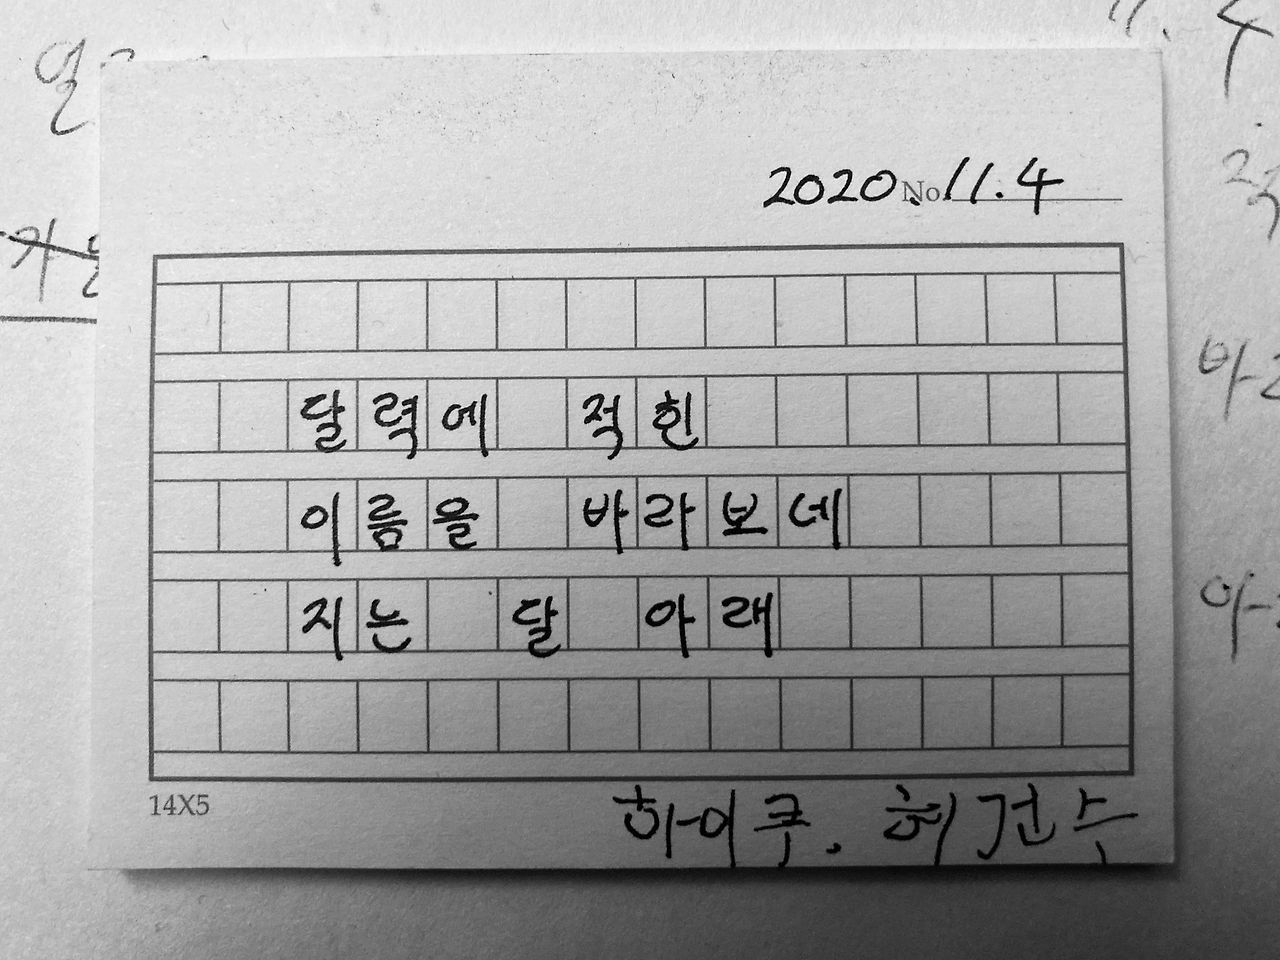 11. 4
2020. No. 11.4
달력에 적힌
이름을 바라보네
지는 달 아래
14X5
하이쿠. 허건수